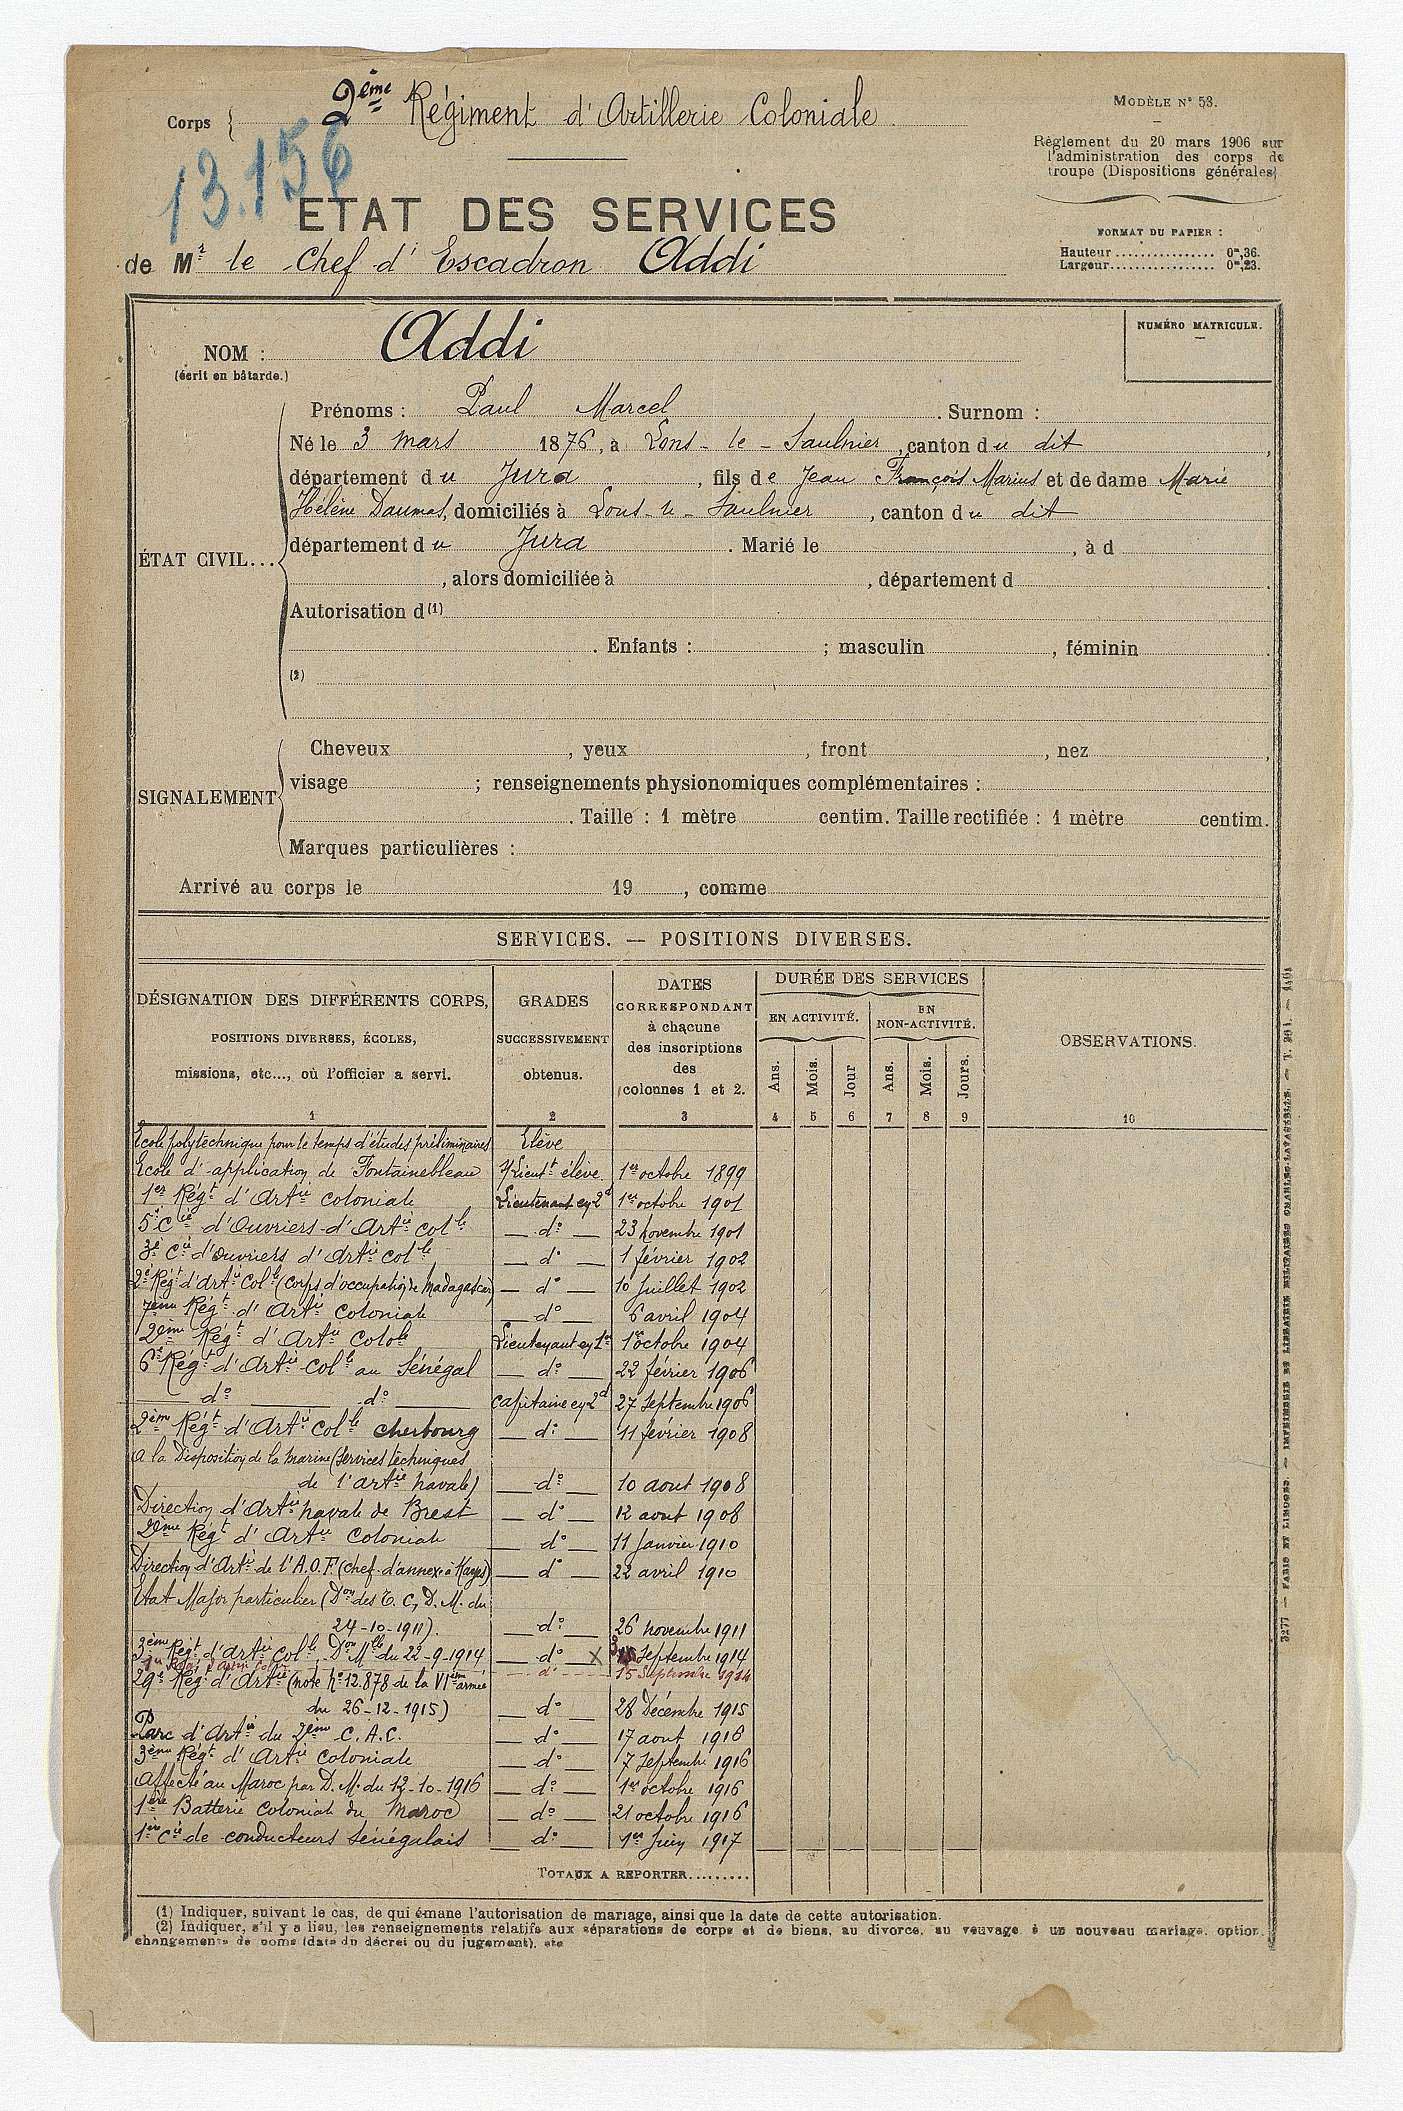 Corps { 2ème Régiment d'Artillerie Coloniale
MODÈLE N° 53.
Règlement du 20 mars 1906 sur
l'administration des corps de
troupe (Dispositions générales)
13.156
ETAT DES SERVICES
FORMAT DU PAPIER :
Hauteur ................ 0m,36.
Largeur ................ 0m,23.
de Mr le Chef d'Escadron Addi
NUMÉRO MATRICULE.
NOM : Addi
(écrit en bâtarde.)
Prénoms : Paul Marcel . Surnom :
Né le 3 mars 1876, à Lons-le-Saulnier, canton du dit,
département du Jura, fils de Jean François Marius et de dame Marie
Hélène Daumas, domiciliés à Lons-le-Saulnier, canton du dit
ÉTAT CIVIL...
département du Jura . Marié le , à d
, alors domiciliée à , département d
Autorisation d(1)
. Enfants : ; masculin , féminin .
(2)
SIGNALEMENT
Cheveux , yeux , front , nez ,
visage ; renseignements physionomiques complémentaires :
. Taille : 1 mètre centim. Taille rectifiée : 1 mètre centim.
Marques particulières :
Arrivé au corps le 19 , comme
SERVICES. — POSITIONS DIVERSES.
DÉSIGNATION DES DIFFÉRENTS CORPS,
POSITIONS DIVERSES, ÉCOLES,
missions, etc..., où l'officier a servi.
1
GRADES
SUCCESSIVEMENT
obtenus.
2
DATES
CORRESPONDANT
à chacune
des inscriptions
des
colonnes 1 et 2.
3
DURÉE DES SERVICES
EN ACTIVITÉ.
EN NON-ACTIVITÉ.
Ans. Mois. Jour Ans. Mois. Jours.
4 5 6 7 8 9
OBSERVATIONS.
10
Ecole polytechnique pour le temps d'études préliminaires Elève
Ecole d'application de Fontainebleau S/Lieutt élève 1er octobre 1899
1er Régt d'Artie coloniale Lieutenant en 2d 1er octobre 1901
5e Cie d'Ouvriers d'Artie colle — do — 23 novembre 1901
3e Cie d'Ouvriers d'Artie colle — do — 1 février 1902
2e Régt d'Artie Colle (corps d'occupation de Madagascar) — do — 10 Juillet 1902
7ème Régt d'Artie Coloniale — do — 6 avril 1904
2ème Régt d'Artie Colole Lieutenant en 1er 1er octobre 1904
6e Régt d'Artie Colle au Sénégal — do — 22 février 1906
do do capitaine en 2d 27 Septembre 1906
2ème Régt d'Artie Colle Cherbourg — do — 11 février 1908
A la Disposition de la Marine (Services techniques
de l'artie navale) — do — 10 aout 1908
Direction d'Artie navale de Brest — do — 12 aout 1908
2ème Régt d'Artie Coloniale — do — 11 Janvier 1910
Direction d'Artie de l'A.O.F. (chef d'annexe à Kayes) — do — 22 avril 1910
Etat Major particulier (Don des T.C, D.M. du
24-10-1911). — do — 26 novembre 1911
3ème Régt d'artie Colle. Don Mlle du 22-9-1914 — do — X 3 Septembre 1914
1er Régt d'Artie Colle — do — 15 Septembre 1914
29e Régt d'Artie (note No 12.878 de la VIème armée
du 26-12-1915) — do — 28 Décembre 1915
Parc d'Artie du 2ème C.A.C. — do — 17 aout 1916
3ème Régt d'Artie Coloniale — do — 7 Septembre 1916
Affecté au Maroc par D.M. du 12-10-1916 — do — 1er octobre 1916
1ère Batterie Coloniale du Maroc — do — 21 octobre 1916
1ère Cie de conducteurs Sénégalais — do — 1er Juin 1917
TOTAUX A REPORTER.........
(1) Indiquer, suivant le cas, de qui émane l'autorisation de mariage, ainsi que la date de cette autorisation.
(2) Indiquer, s'il y a lieu, les renseignements relatifs aux séparations de corps et de biens, au divorce, au veuvage à un nouveau mariage, option,
changements de noms (date du décret ou du jugement), etc
3277 — PARIS ET LIMOGES. — IMPRIMERIE ET LIBRAIRIE MILITAIRES CHARLES-LAVAUZELLE. — T. 261. — 1401